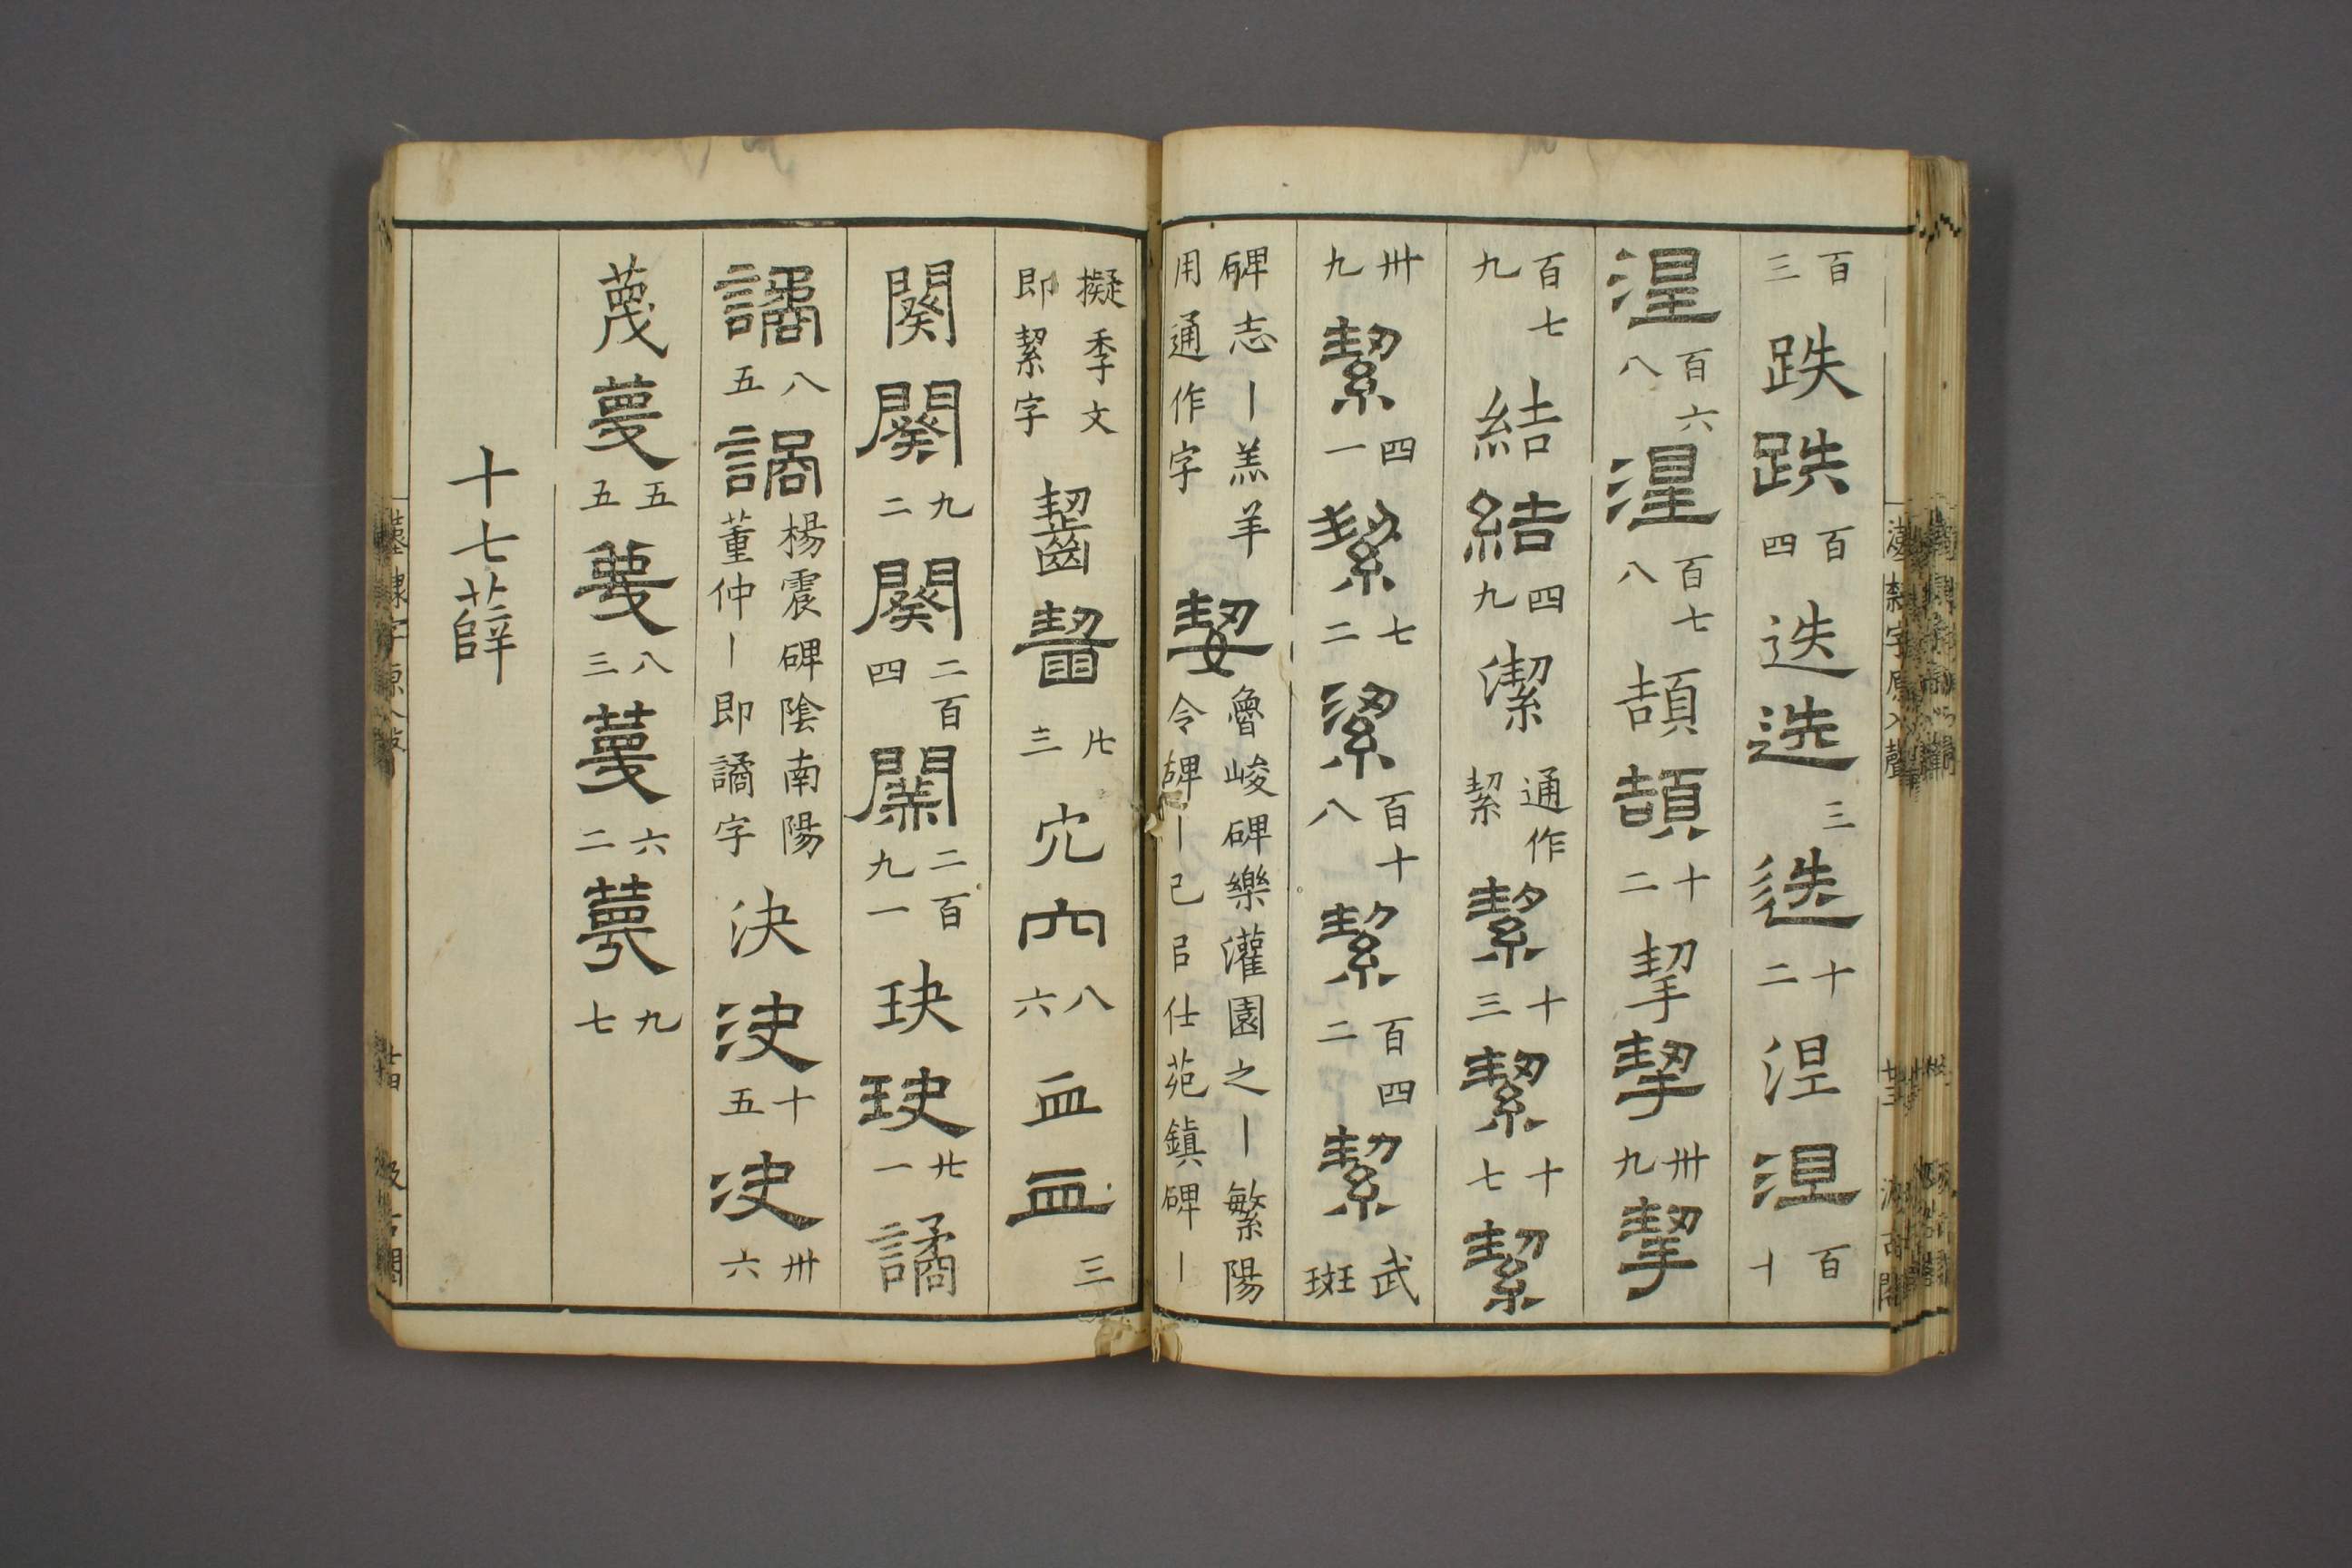 百三 跌 跌 百四 迭 迭 三 迭 十二 涅 涅 百十
涅 百六八 涅 百七八 頡 頡 十二 挈 挈 卅九 挈
百七九 結 結 四九 潔 通作絜 絜 十三 絜 十七 絜
卅九 絜 四一 絜 七二 潔 百十八 絜 百四二 絜 武班
碑志丨羔羊用通作字 契 魯峻碑樂灌園之丨繁陽令碑丨己㠯仕苑鎮碑丨
擬季文即絜字 齧 齧 廿三 穴 穴 八六 血 血 三
闋 闋 九二 闋 二百四 闋 二百九一 玦 玦 廿一 譎
譎 八五 譎 楊震碑陰南陽董仲丨即譎字 決 決 十五 決 卅六
蔑 蔑 五五 蔑 八三 蔑 六二 蔑 九七
十七薛
漢隸字原入聲
汲古閣